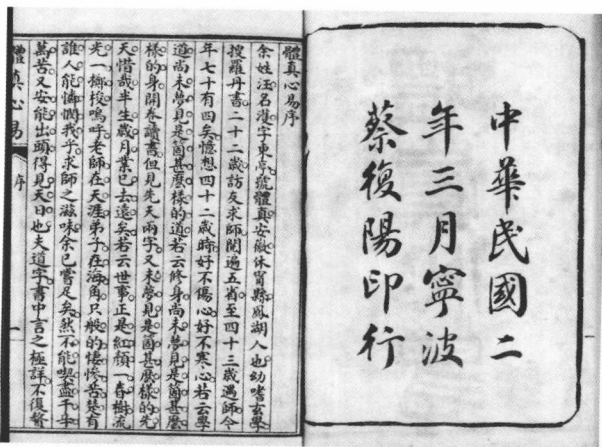 中華民國二
年三月寧波
蔡復陽印行
體真心易序
余姓汪名澄字東亭號體真安徽休甯縣鳳湖人也幼嗜玄學
搜羅丹書二十二歲訪友求師閱遍五省至四十三歲遇師今
年七十有四矣憶想四十二歲時好不傷心好不寒心若云學
道尚未夢見是箇甚麼樣的道若云修身尚未夢見是箇甚麼
樣的身開卷讀書但見先天兩字又未夢見是箇甚麼樣的先
天惜哉半生歲月業已去遠矣若云世事正是紅顏一春樹流
光一擲梭嗚呼老師在天涯弟子在海角只般的悽慘苦楚有
誰人能憐憫我乎求師之滋味余已嘗足矣然不能喫盡千辛
萬苦又安能出頭得見天日也夫道字書中言之極詳不復贅
體真心易
序
一